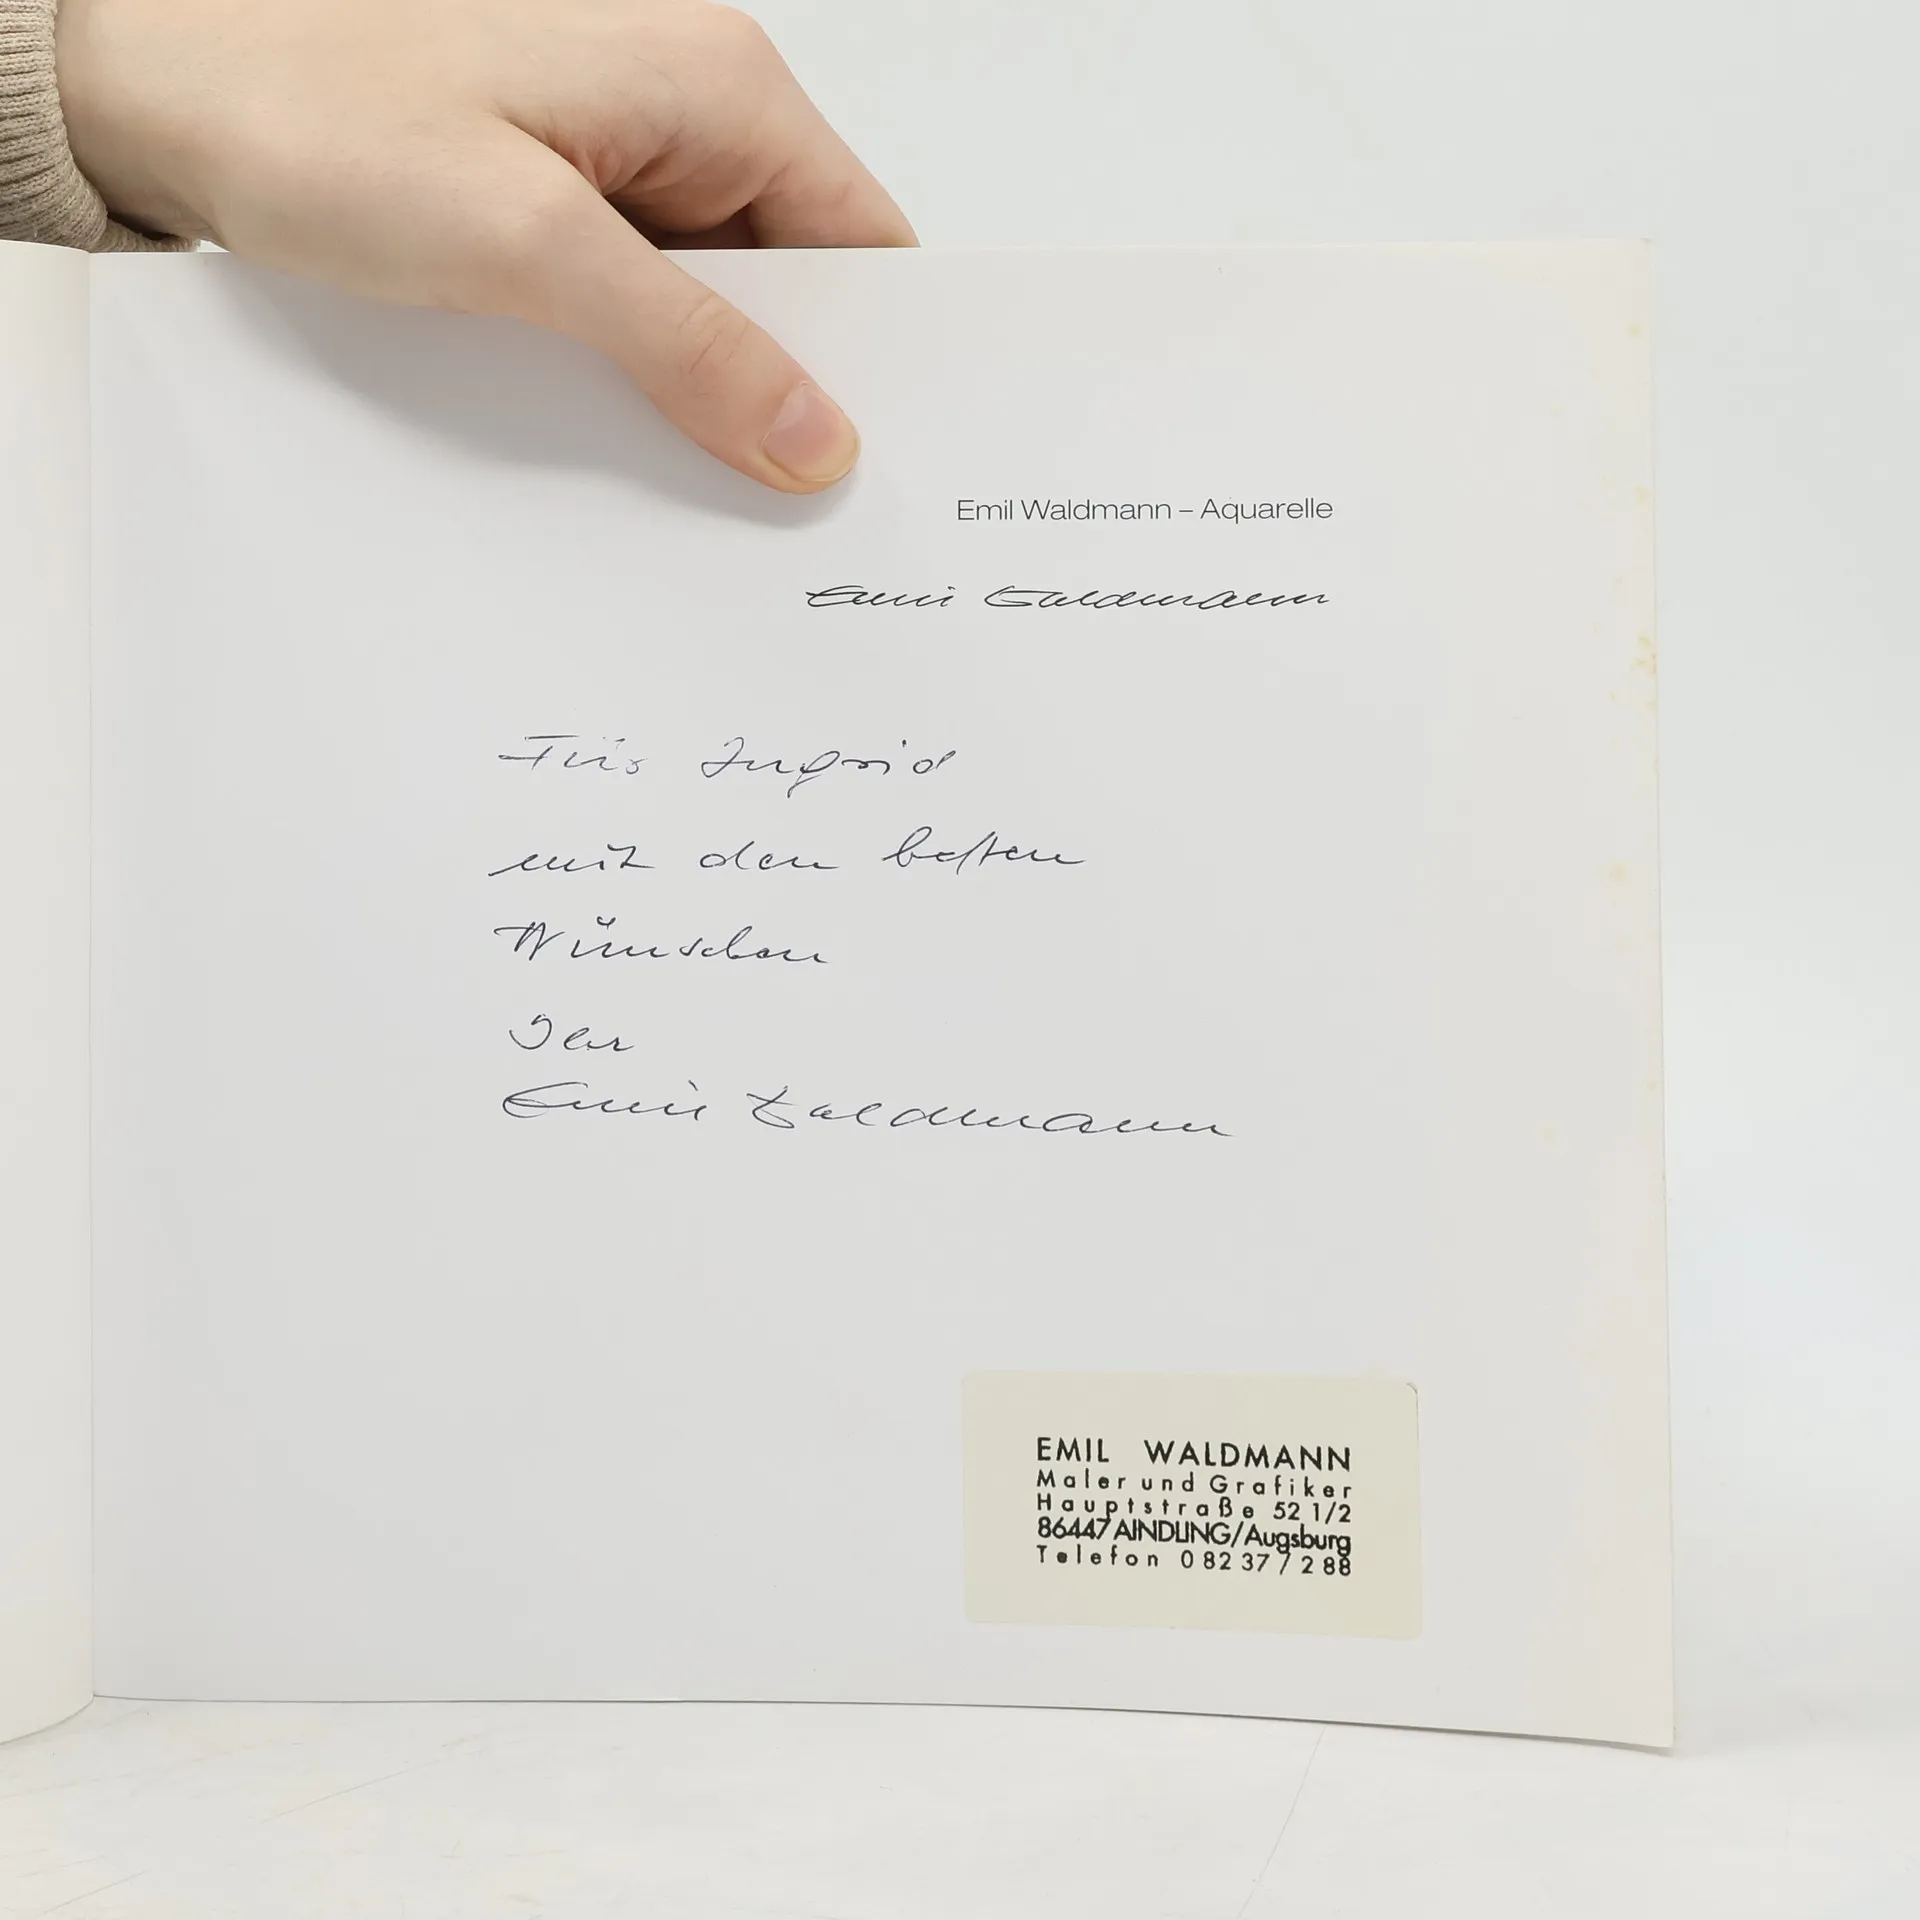 Emil Waldmann – Aquarelle
Emil Waldmann
Für Ingrid
mit den besten
Wünschen
Ihr
Emil Waldmann
EMIL WALDMANN
Maler und Grafiker
Hauptstraße 52 1/2
86447 AINDLING/Augsburg
Telefon 0 82 37 / 2 88